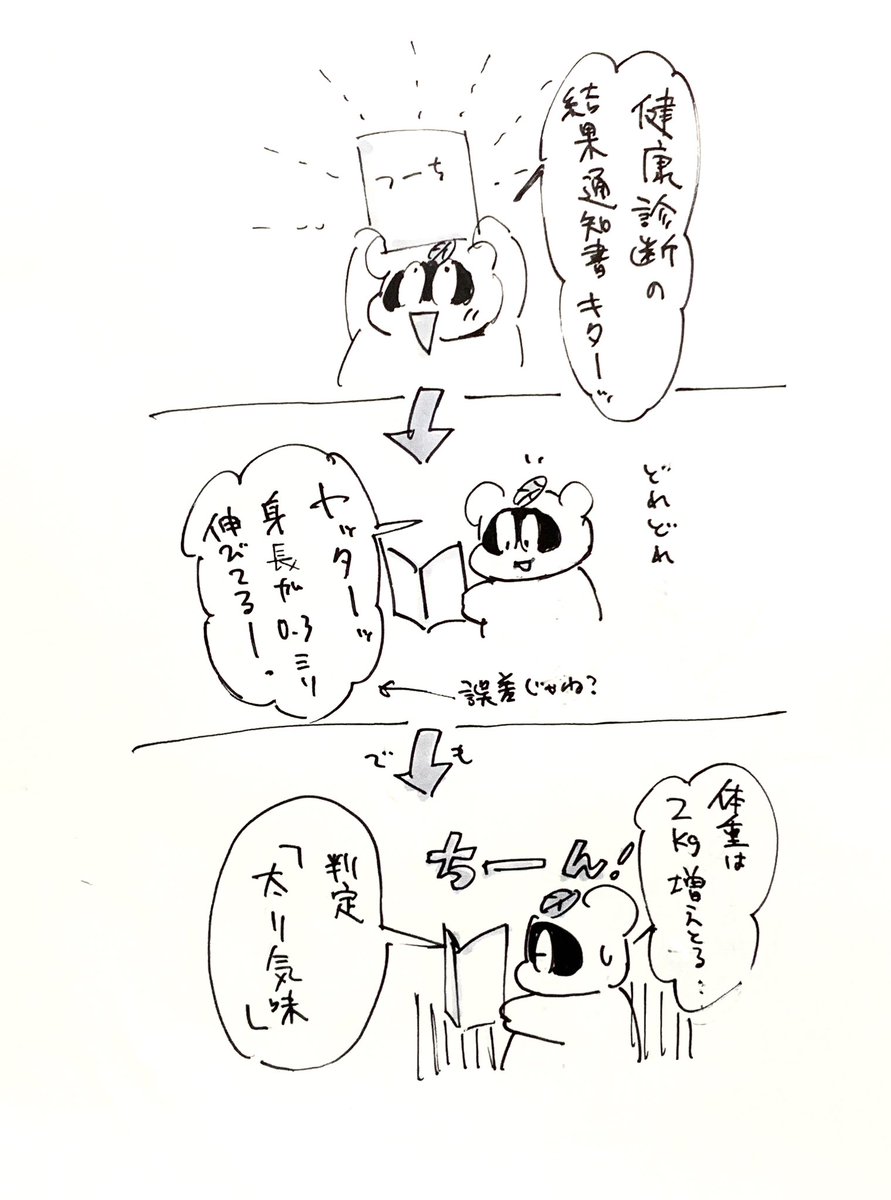 健康診断の
結果通知書キターッ
つーち
どれどれ
ヤッターッ
身長が0.3ミリ
伸びてるー。
誤差じゃね?
でも
体重は
2kg増えとる…
ちーん!
判定
「太り気味」